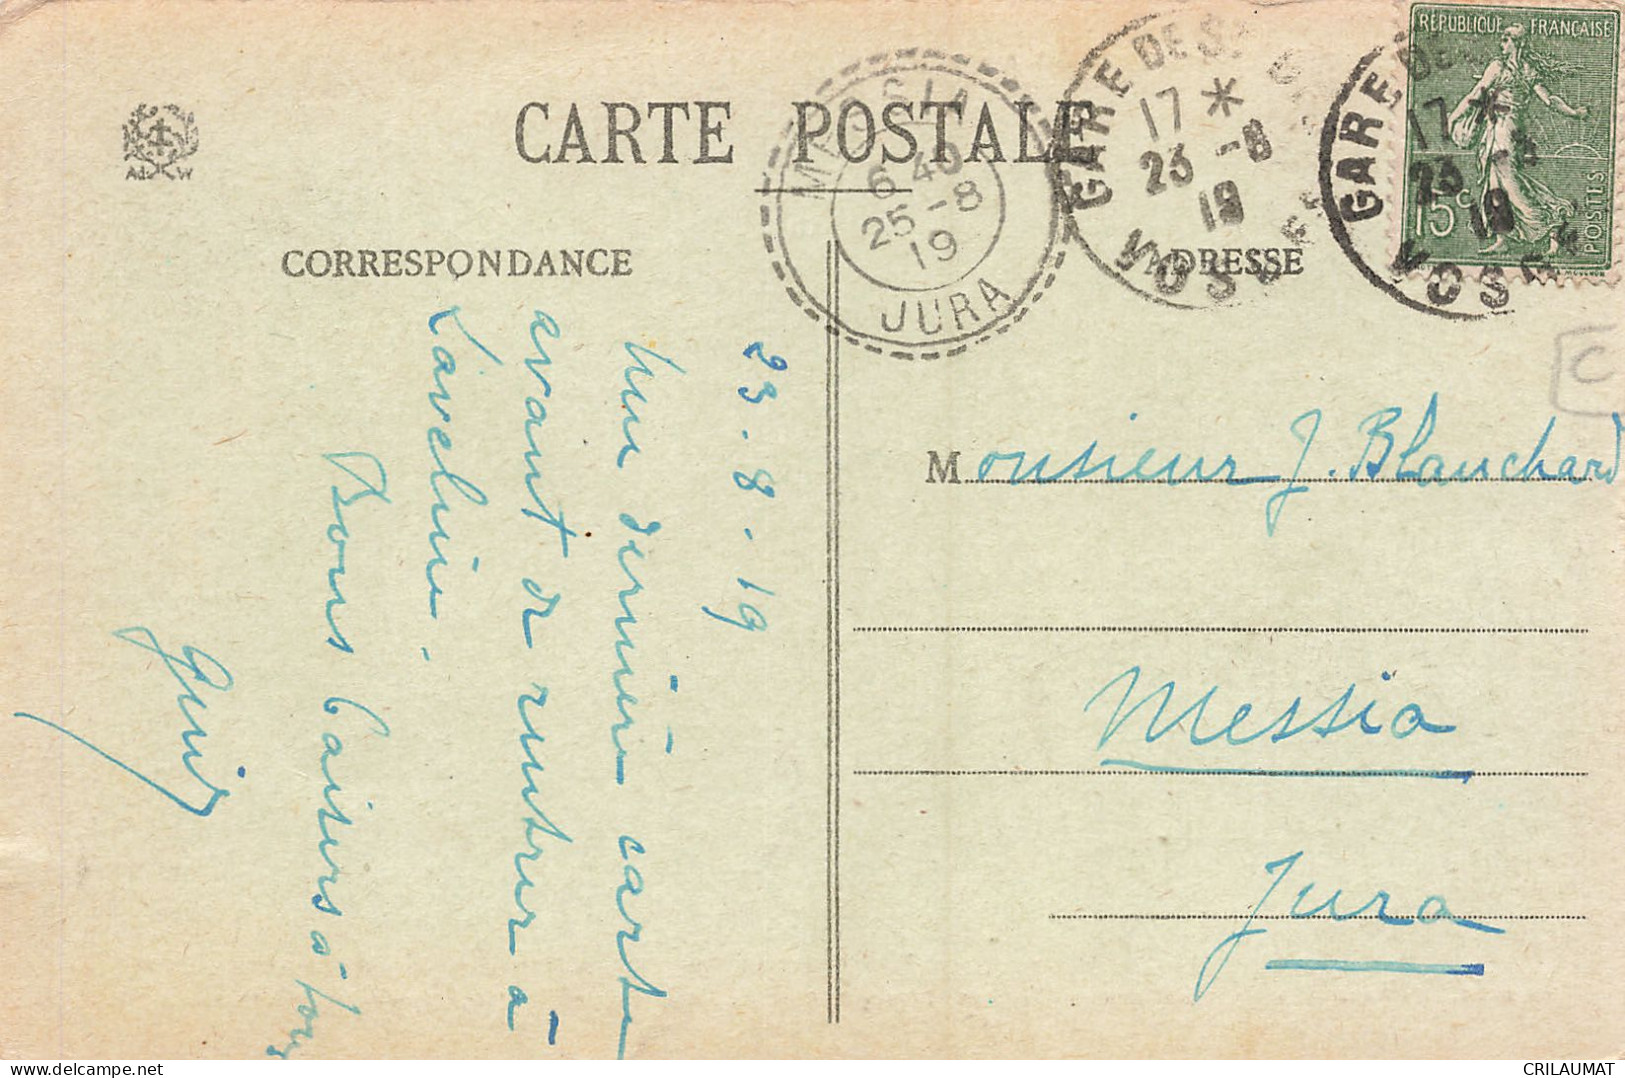 CARTE POSTALE
CORRESPONDANCE
ADRESSE
23.8.19
Une dernière carte
avant de rentrer à
Lavelnie.
Bons baisers à tous
MESSIA
6 40
25-8
19
JURA
GARE DE ST
17 *
23 -8
19
VOSGES
GARE DE
17 *
23 -8
19
VOSGES
RÉPUBLIQUE FRANÇAISE
15c
POSTES
C
Monsieur J. Blanchard
Messia
Jura
CRILAUMAT